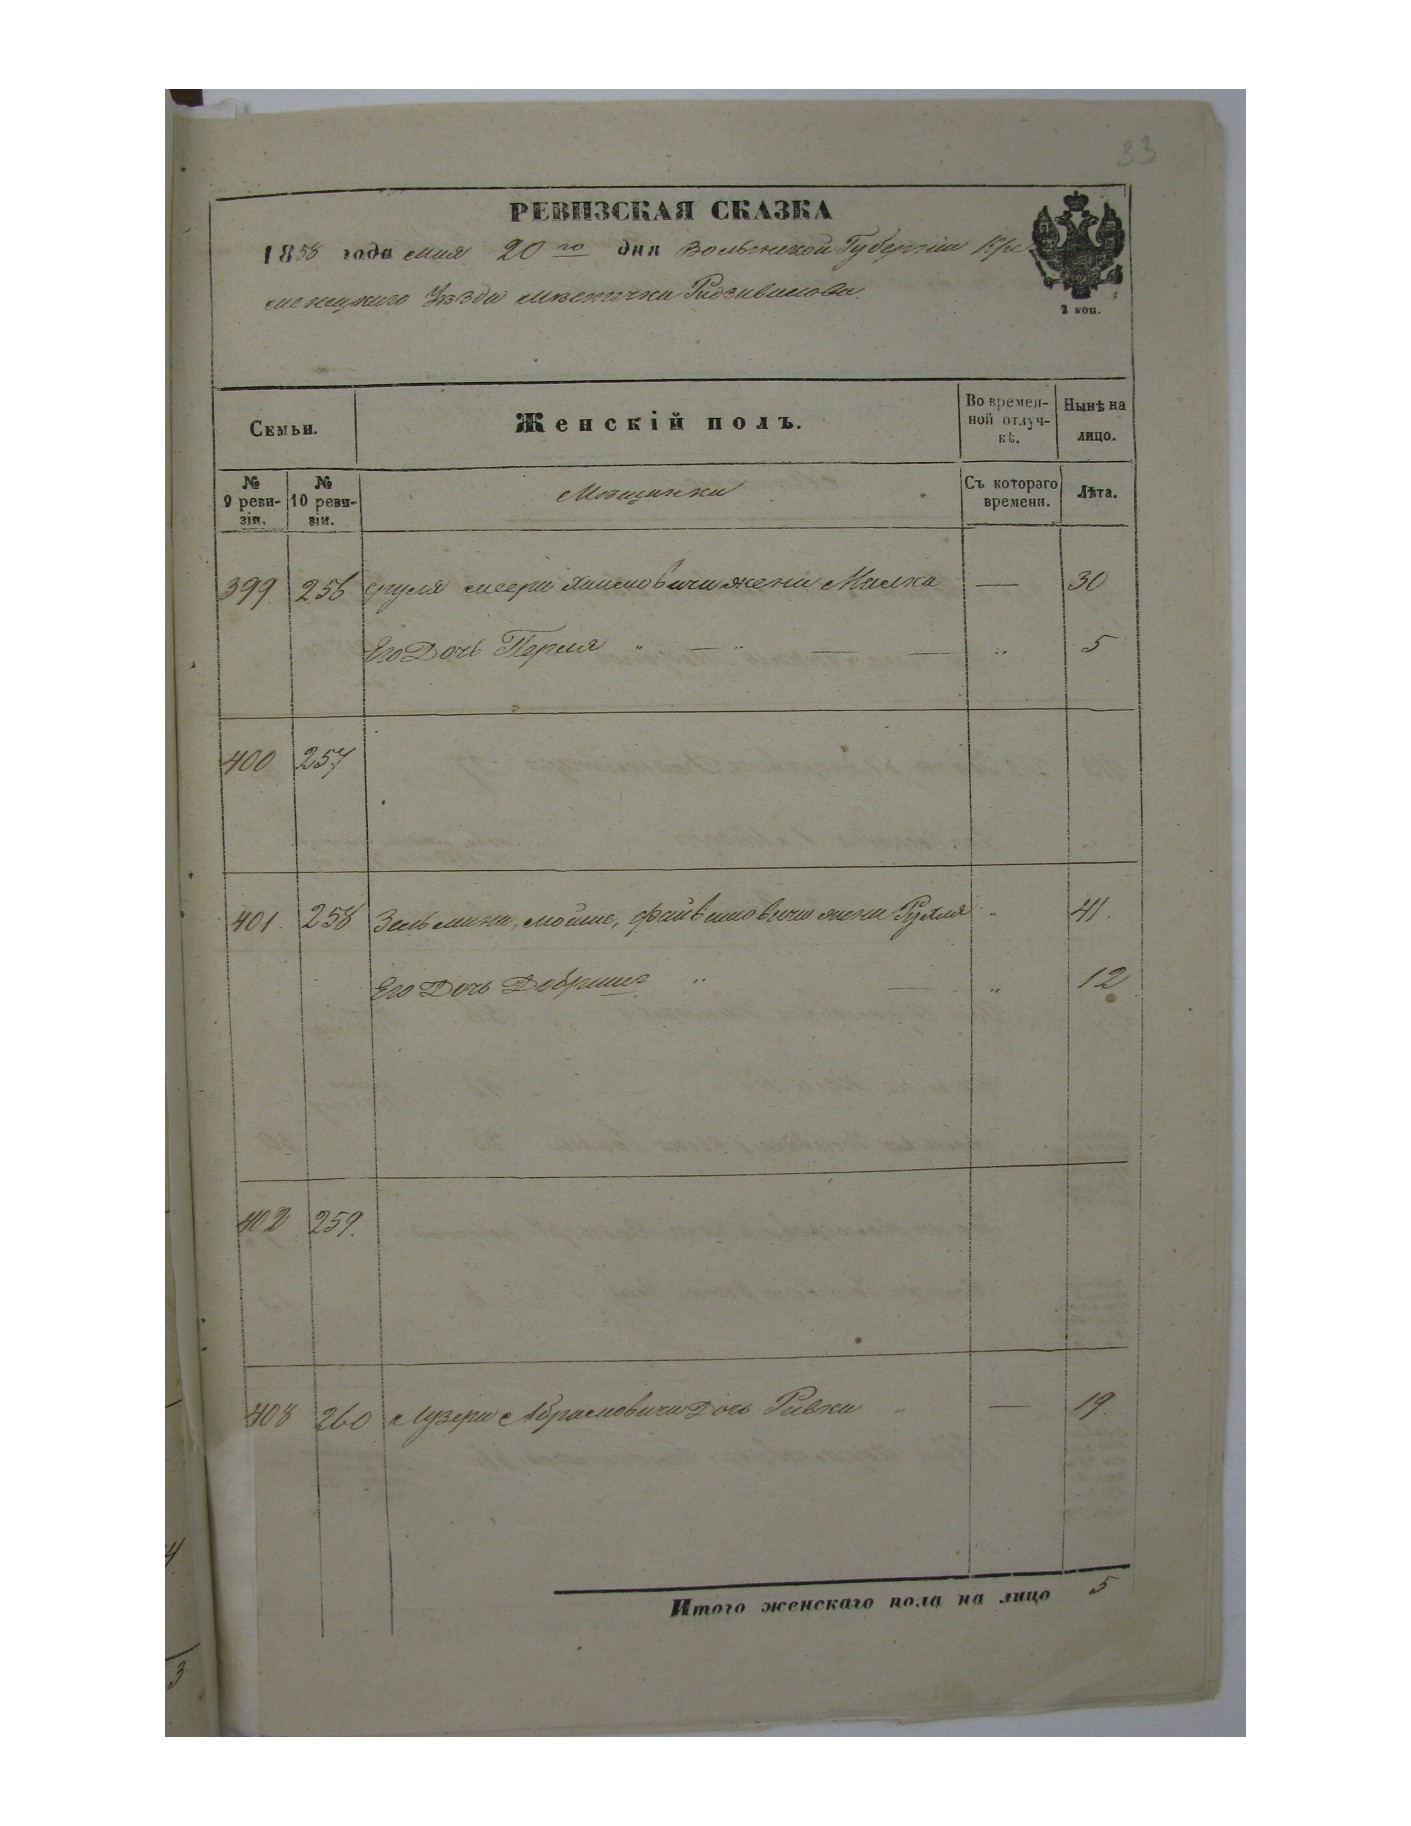 33
РЕВИЗСКАЯ СКАЗКА
1858 года мая 20го дня Волынской Губерніи Кре
менецкаго Уѣзда мѣстечка Радзивилова.
2 коп.
Семьи.
Женскій полъ.
Во времен-
ной отлуч-
кѣ.
Нынѣ на
лицо.
№
9 реви-
зіи.
№
10 реви-
зіи.
Мѣщанки
Съ котораго
времени.
Лѣта.
399 256 Сруля Меера Хаимовича жена Малка — 30
Его Дочь Перля " — " — — " 5
400 257
401. 258 Зельмана, Мойше, Файвишовича жена Рухля " 41.
Его Дочь Добриш " — " 12
402 259.
403 260 Лузера Абрамовича Дочь Ривка " — 19
Итого женскаго пола на лицо 5
4
3